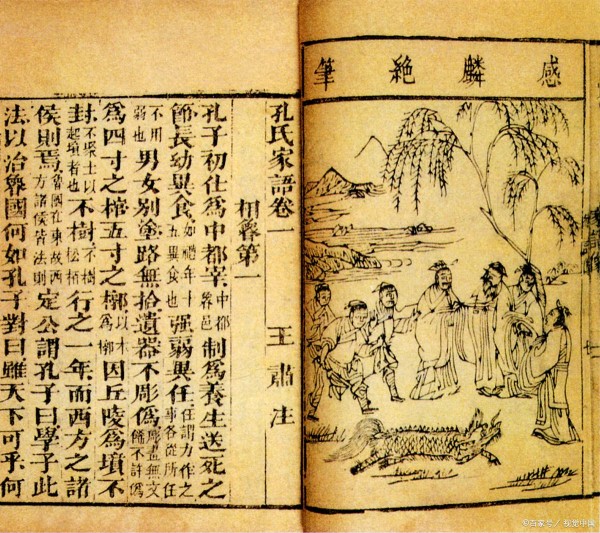 感麟絶筆
孔氏家語卷一 王肅注
相魯第一
孔子初仕爲中都宰中都魯邑制爲養生送死之
節長幼異食如禮年十五異食也強弱異任任謂力作之事各從所任
不用弱也男女別塗路無拾遺器不彫僞彫畫無文飾不詐僞
爲四寸之棺五寸之槨以木爲槨因丘陵爲墳不
封不聚土以起墳者也不樹不樹松柏行之一年而西方之諸
侯則焉魯國在東故西方諸侯皆法則定公謂孔子曰學子此
法以治魯國何如孔子對曰雖天下可乎何
©百家号/视觉中国